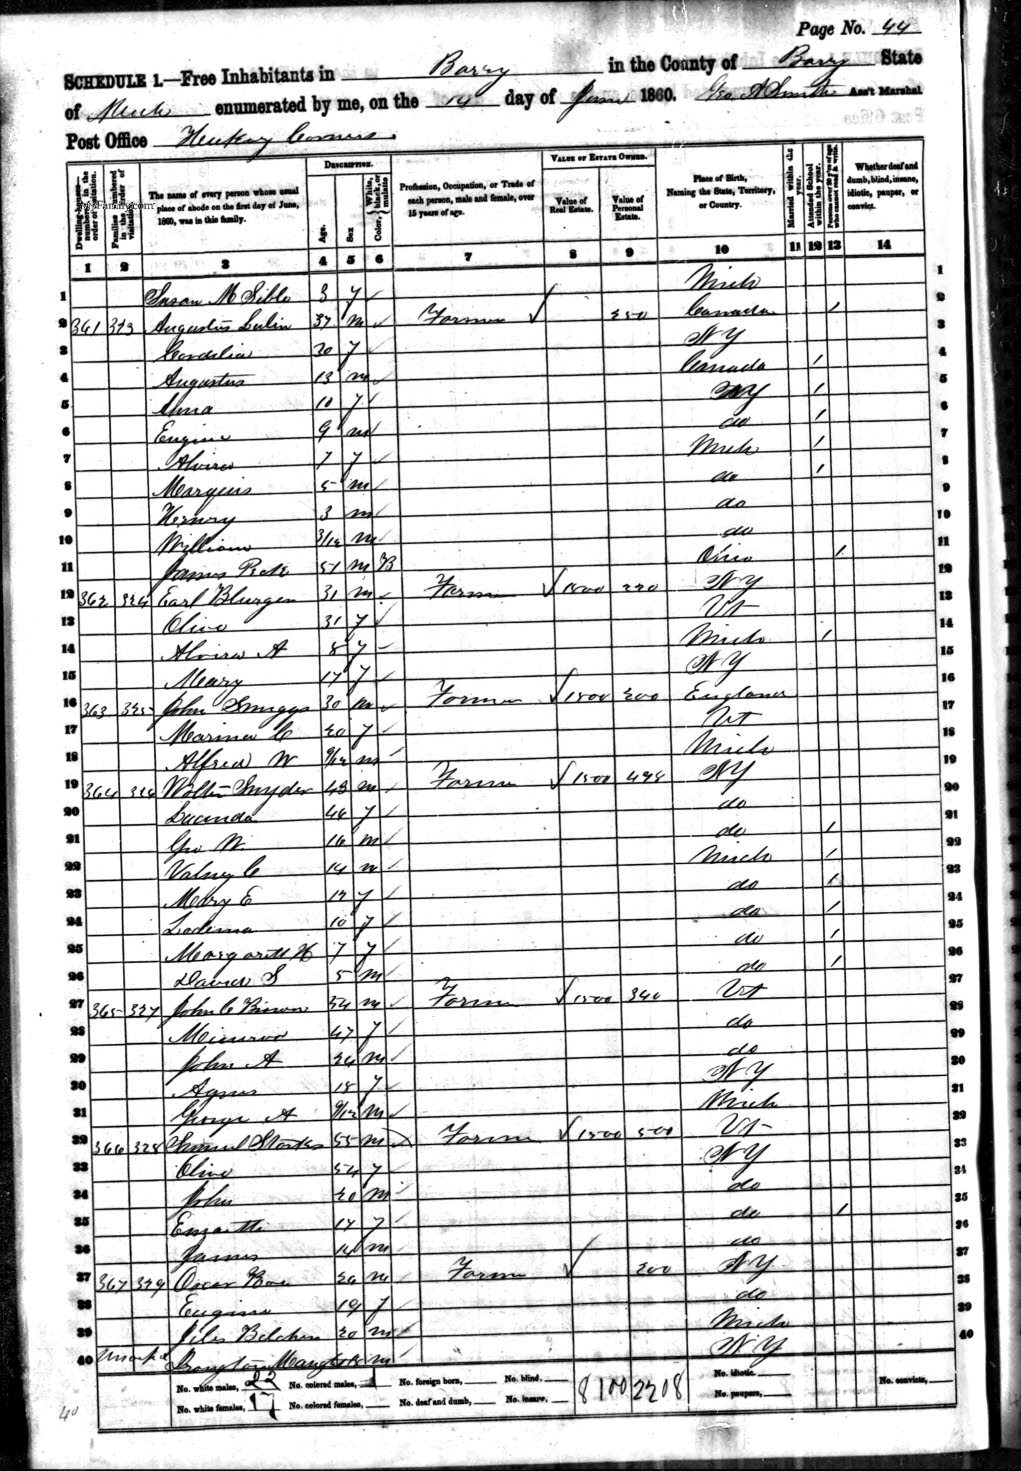 Page No. 44
SCHEDULE 1.—Free Inhabitants in Barry in the County of Barry State
of Mich enumerated by me, on the 14 day of June 1860. Geo A Smith Ass't Marshal
Post Office Hickory Corners
Dwelling-houses—numbered in the order of visitation.
Families numbered in the order of visitation.
The name of every person whose usual place of abode on the first day of June, 1860, was in this family.
DESCRIPTION.
Age.
Sex
Color, White, black, or mulatto
Profession, Occupation, or Trade of each person, male and female, over 15 years of age.
VALUE OF ESTATE OWNED.
Value of Real Estate.
Value of Personal Estate.
Place of Birth, Naming the State, Territory, or Country.
Married within the year.
Attended School within the year.
Persons over 20 y'rs of age who cannot read & write.
Whether deaf and dumb, blind, insane, idiotic, pauper, or convict.
1 2 3 4 5 6 7 8 9 10 11 12 13 14
1 Susan M 3 f Mich 1
2 361 323 Augustus 37 m Farmer 250 Canada / 2
3 Cordelia 30 f NY 3
4 Augustus 13 m Canada / 4
5 Alma 10 f NY / 5
6 Eugine 9 m do / 6
7 Alvira 7 f Mich / 7
8 5 m do / 8
9 Henery 3 m do 9
10 William 3/12 m do 10
11 James Peck 51 m B / 11
12 362 324 Earl 31 m Farmer 1800 220 NY 12
13 Olive 31 f Vt 13
14 Alvira A 8 f Mich / 14
15 Mary 17 f NY 15
16 363 325 John 30 m Farmer 1800 200 England 16
17 20 f Vt 17
18 Alfred W 9/12 m Mich 18
19 364 326 Snyder 43 m Farmer 1500 498 NY 19
20 Lucinda 44 f do 20
21 Geo W 16 m do / 21
22 Valney C 14 m Mich / 22
23 Mary E 12 f do / 23
24 Lodema 10 f do / 24
25 Margarett H 7 f do / 25
26 David S 5 m do / 26
27 365 327 John C Brown 54 m Farmer 1500 340 Vt 27
28 47 f do 28
29 John A 24 m do 29
30 Agnes 18 f NY 30
31 George A 9/12 m Mich 31
32 366 328 Samuel 55 m Farmer 1500 500 Vt 32
33 Olive 54 f NY 33
34 John 20 m do 34
35 17 f do / 35
36 James 14 m do 36
37 367 329 Oscar 26 m Farmer 200 NY 37
38 Eugine 19 f do 38
39 Belcher 20 m Mich 39
40 m NY 40
No. white males, 22 No. colored males, 1 No. foreign born, No. blind, 8100 2208 No. idiotic, No. convicts,
No. white females, 17 No. colored females, No. deaf and dumb, No. insane, No. paupers,
40